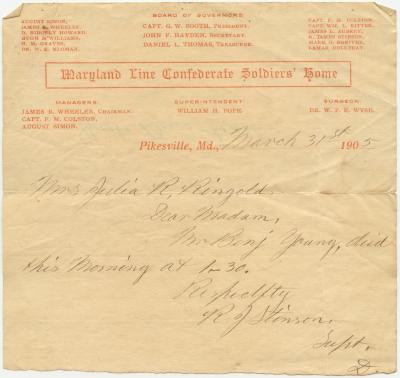 BOARD OF GOVERNORS
AUGUST SIMON,
JAMES R. WHEELER,
D. RIDGELY HOWARD,
HUGH McWILLIAMS,
DR. W. E. WIGMAN.
CAPT. G. W. BOOTH, PRESIDENT.
JOHN F. HAYDEN, SECRETARY.
DANIEL L. THOMAS, TREASURER.
CAPT. F. M. COLSTON,
CAPT. WM. L. RITTER,
JAMES L. AUBREY,
Maryland Line Confederate Soldiers' Home
MANAGERS:
JAMES R. WHEELER, CHAIRMAN.
CAPT. F. M. COLSTON.
AUGUST SIMON.
SUPERINTENDENT:
WILLIAM H. POPE.
SURGEON:
DR. W. P. E. WYSE.
Pikesville, Md., March 31st 1905
Mrs Julia R. Ringold.
Dear Madam,
Mr Benj Young, died
this Morning at 1-30.
Respectfty
R J Stinson.
Supt.
D.